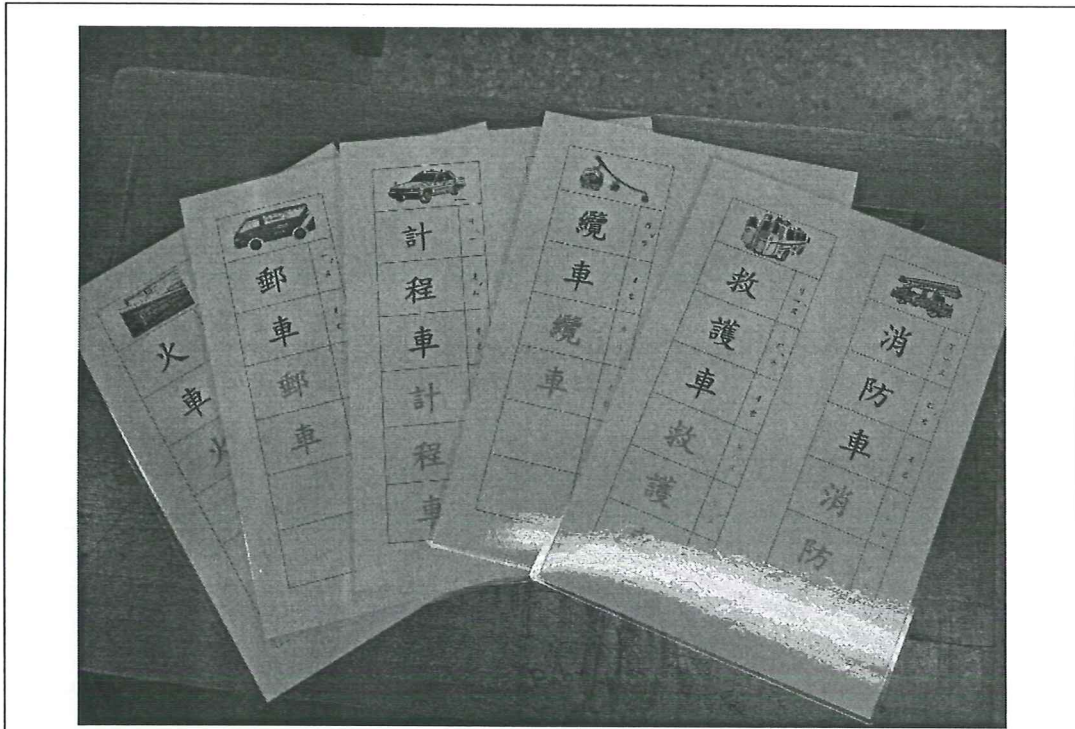 火車火
郵車郵車
計程車計程車
纜車纜車
救護車救護
消防車消防